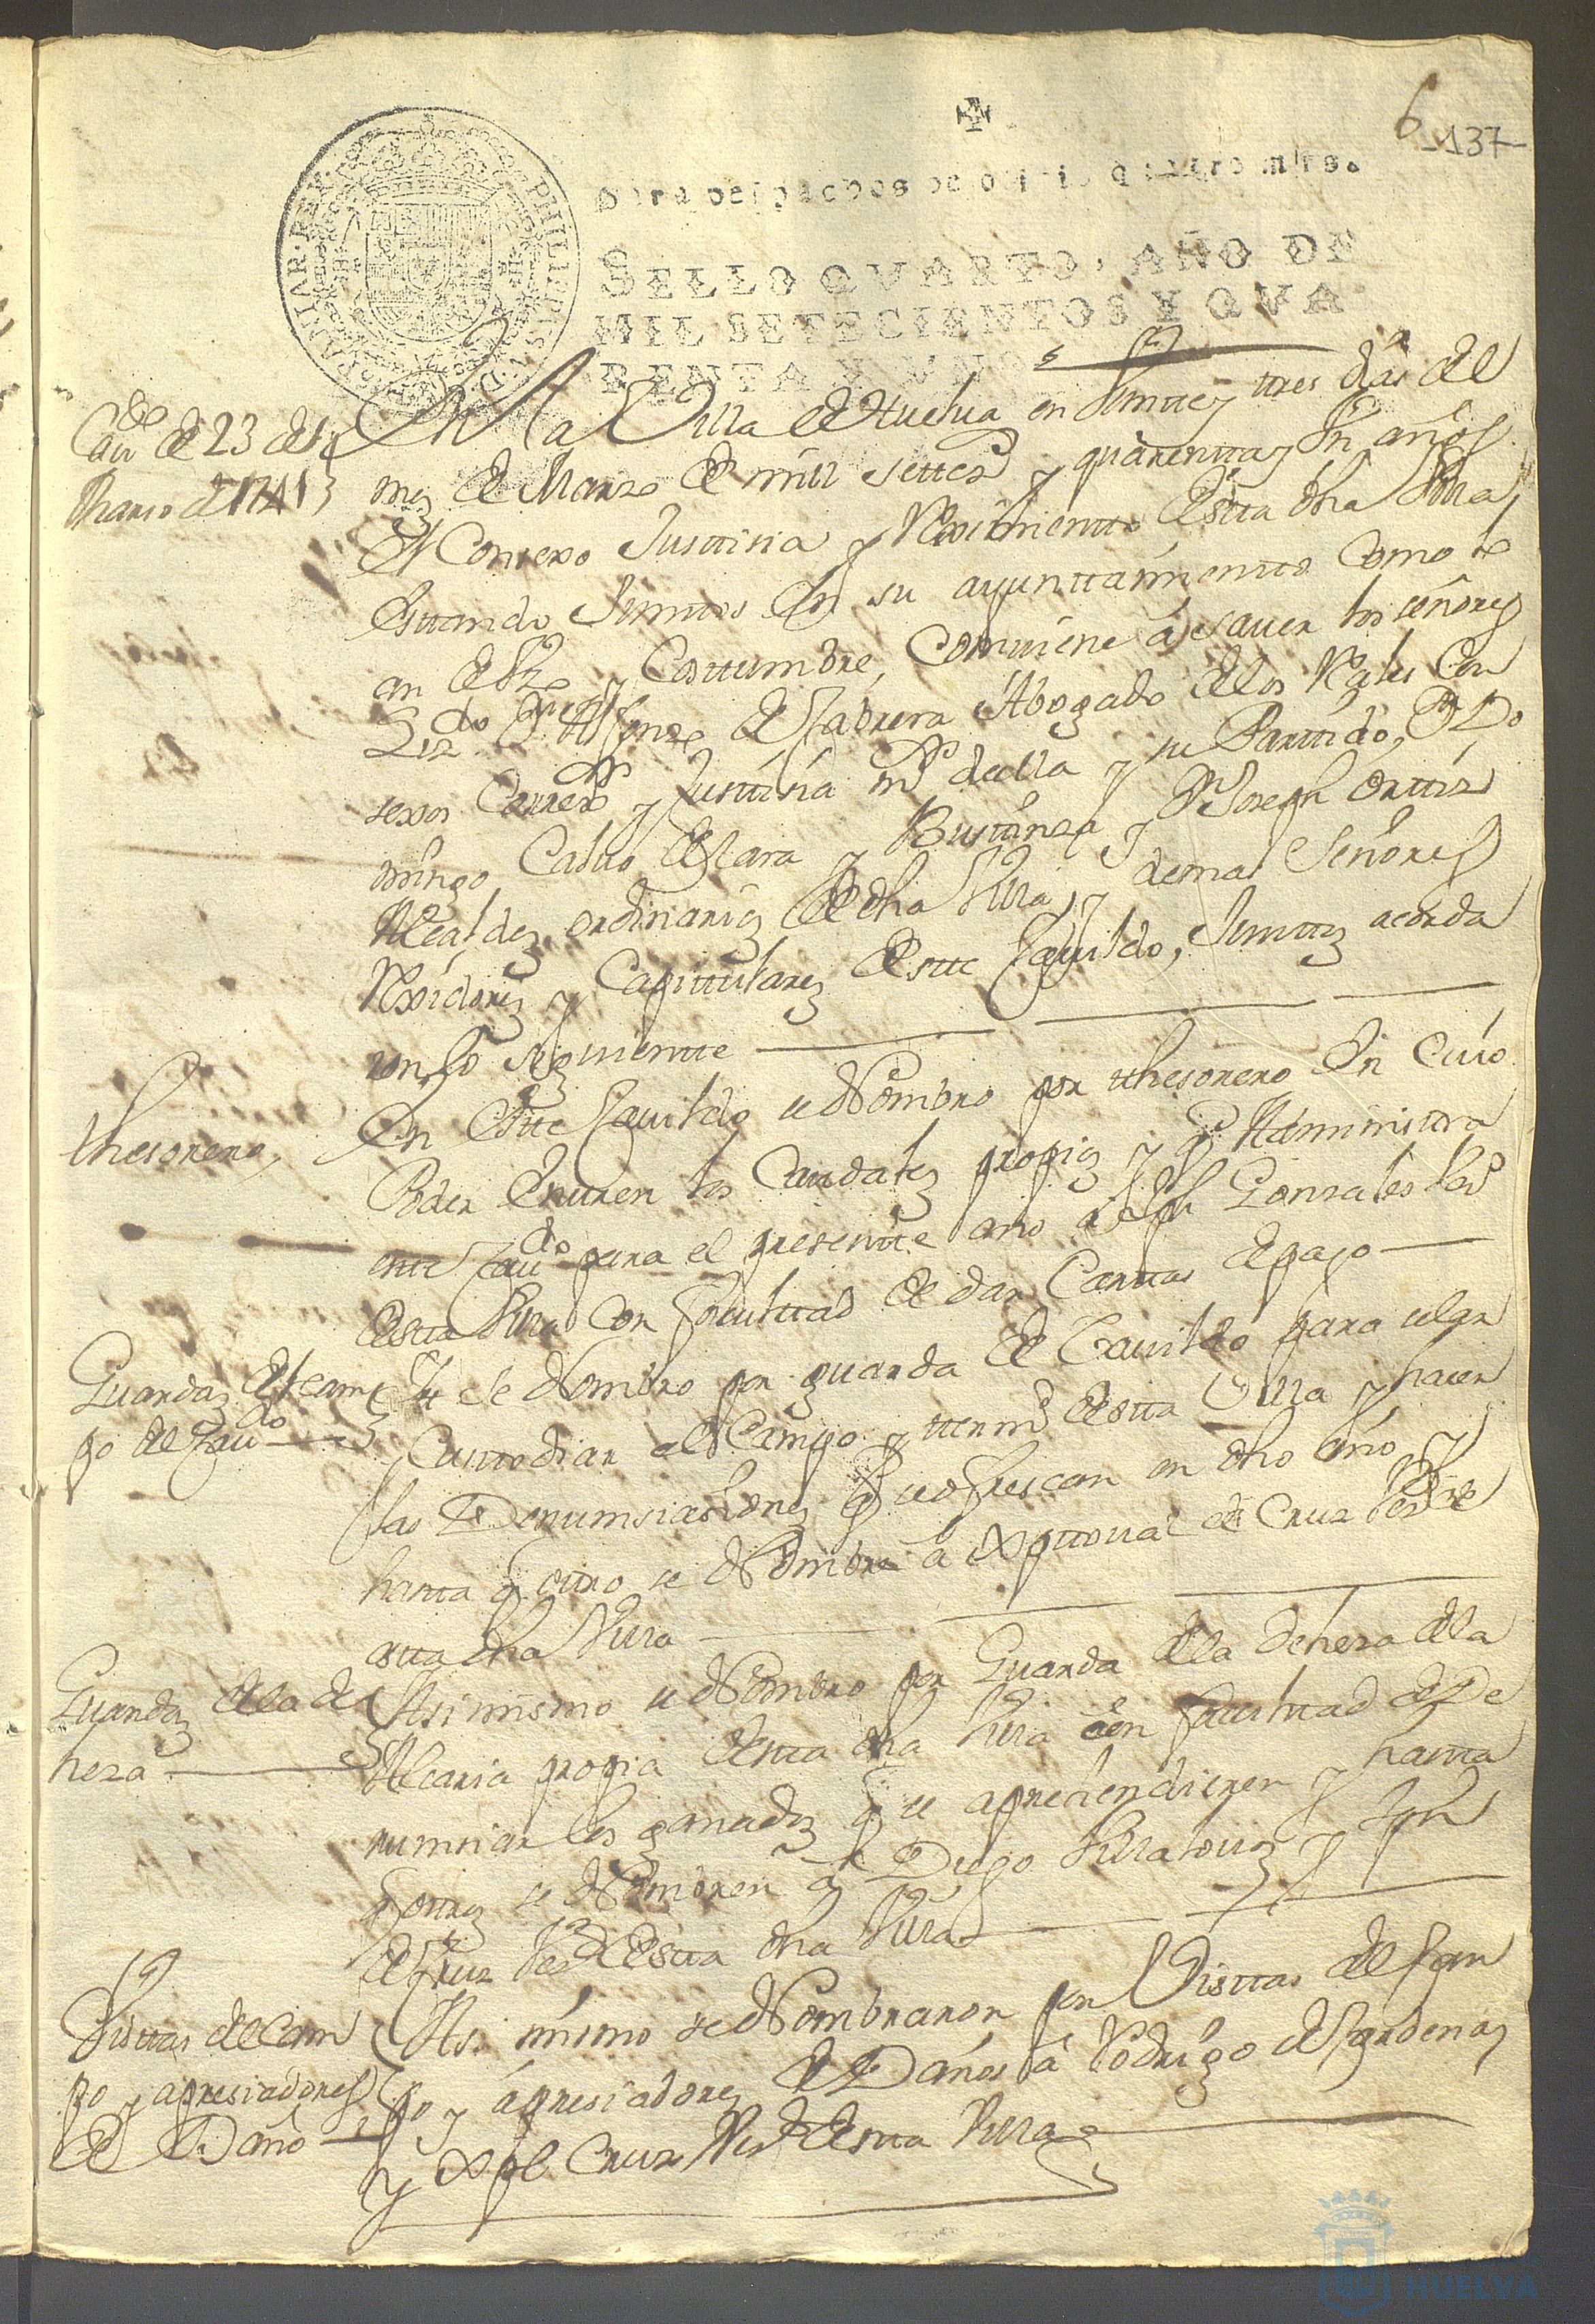 6
-137-
Para despachos de oficio quatro mrs.
SELLO QVARTO, AÑO DE
MIL SETECIENTOS Y QVA
RENTA Y VNO
PHILIPPUS V D G HISPANIAR REX
Cavdo de 23 de
Marzo de 1741
En la Villa de Huelva en Veintte y ttres dias del
mes de Marzo de mill settezs y quarentta y Un años
El Consexo Justtisia y Reximientto desta dha Villa
esttando Junttos en su ayunttamientto como lo
an de Uzo y Costtumbre, Comviene a saver los señores
Lizdo Dn Alfonzo de Cabrera Abogado de los Rales Con
sexos Corexor y Justtisia mr della y su Parttido, Dn Do
mingo Calvo de Lara y Busttanza y Dn Joseph Orttiz
Alcaldes ordinarios de dha Villa, y demas Señores
Rexidores y Capittulares deste Cavildo, Junttos acorda
ron lo siguientte
thesorero,
En Este Cavildo se Nombro por thesorero en Cuio
Poder Enttren los Caudales propios y q Administtra
este Cavdo para el presentte año a Gonzales
desta Villa Con facultad de dar Carttas de pago
Guardas del cam
po del Cavdo
Yt se Nombro por guarda de Cavildo para celar
y Custtodiar el Campo y ttermo de estta Villa y hacer
las Denumsiasiones q se ofrescan en dho año, y
hasta q ottro se Nombre a Xptoval de Cruz Vesno de
estta dha Villa
Guardas de la de
heza
Asimismo se Nombro por Guarda de la deheza de la
Alcaria propia desta dha Villa con facultad de De
numsiar los ganados q se aprehendieren y hasta
q ottros se Nombren a Diego Villalovos y Jn
de Cruz Vesos de Esta dha Villa
Visttas de Cam
po y apresiadores
de Daño
Asi mismo se Nombraron por Visttas de Cam
po y apresiadores de Daños a Rodrigo de Cardenas
y Xpl Cruz Vesos desta Villa
HUELVA